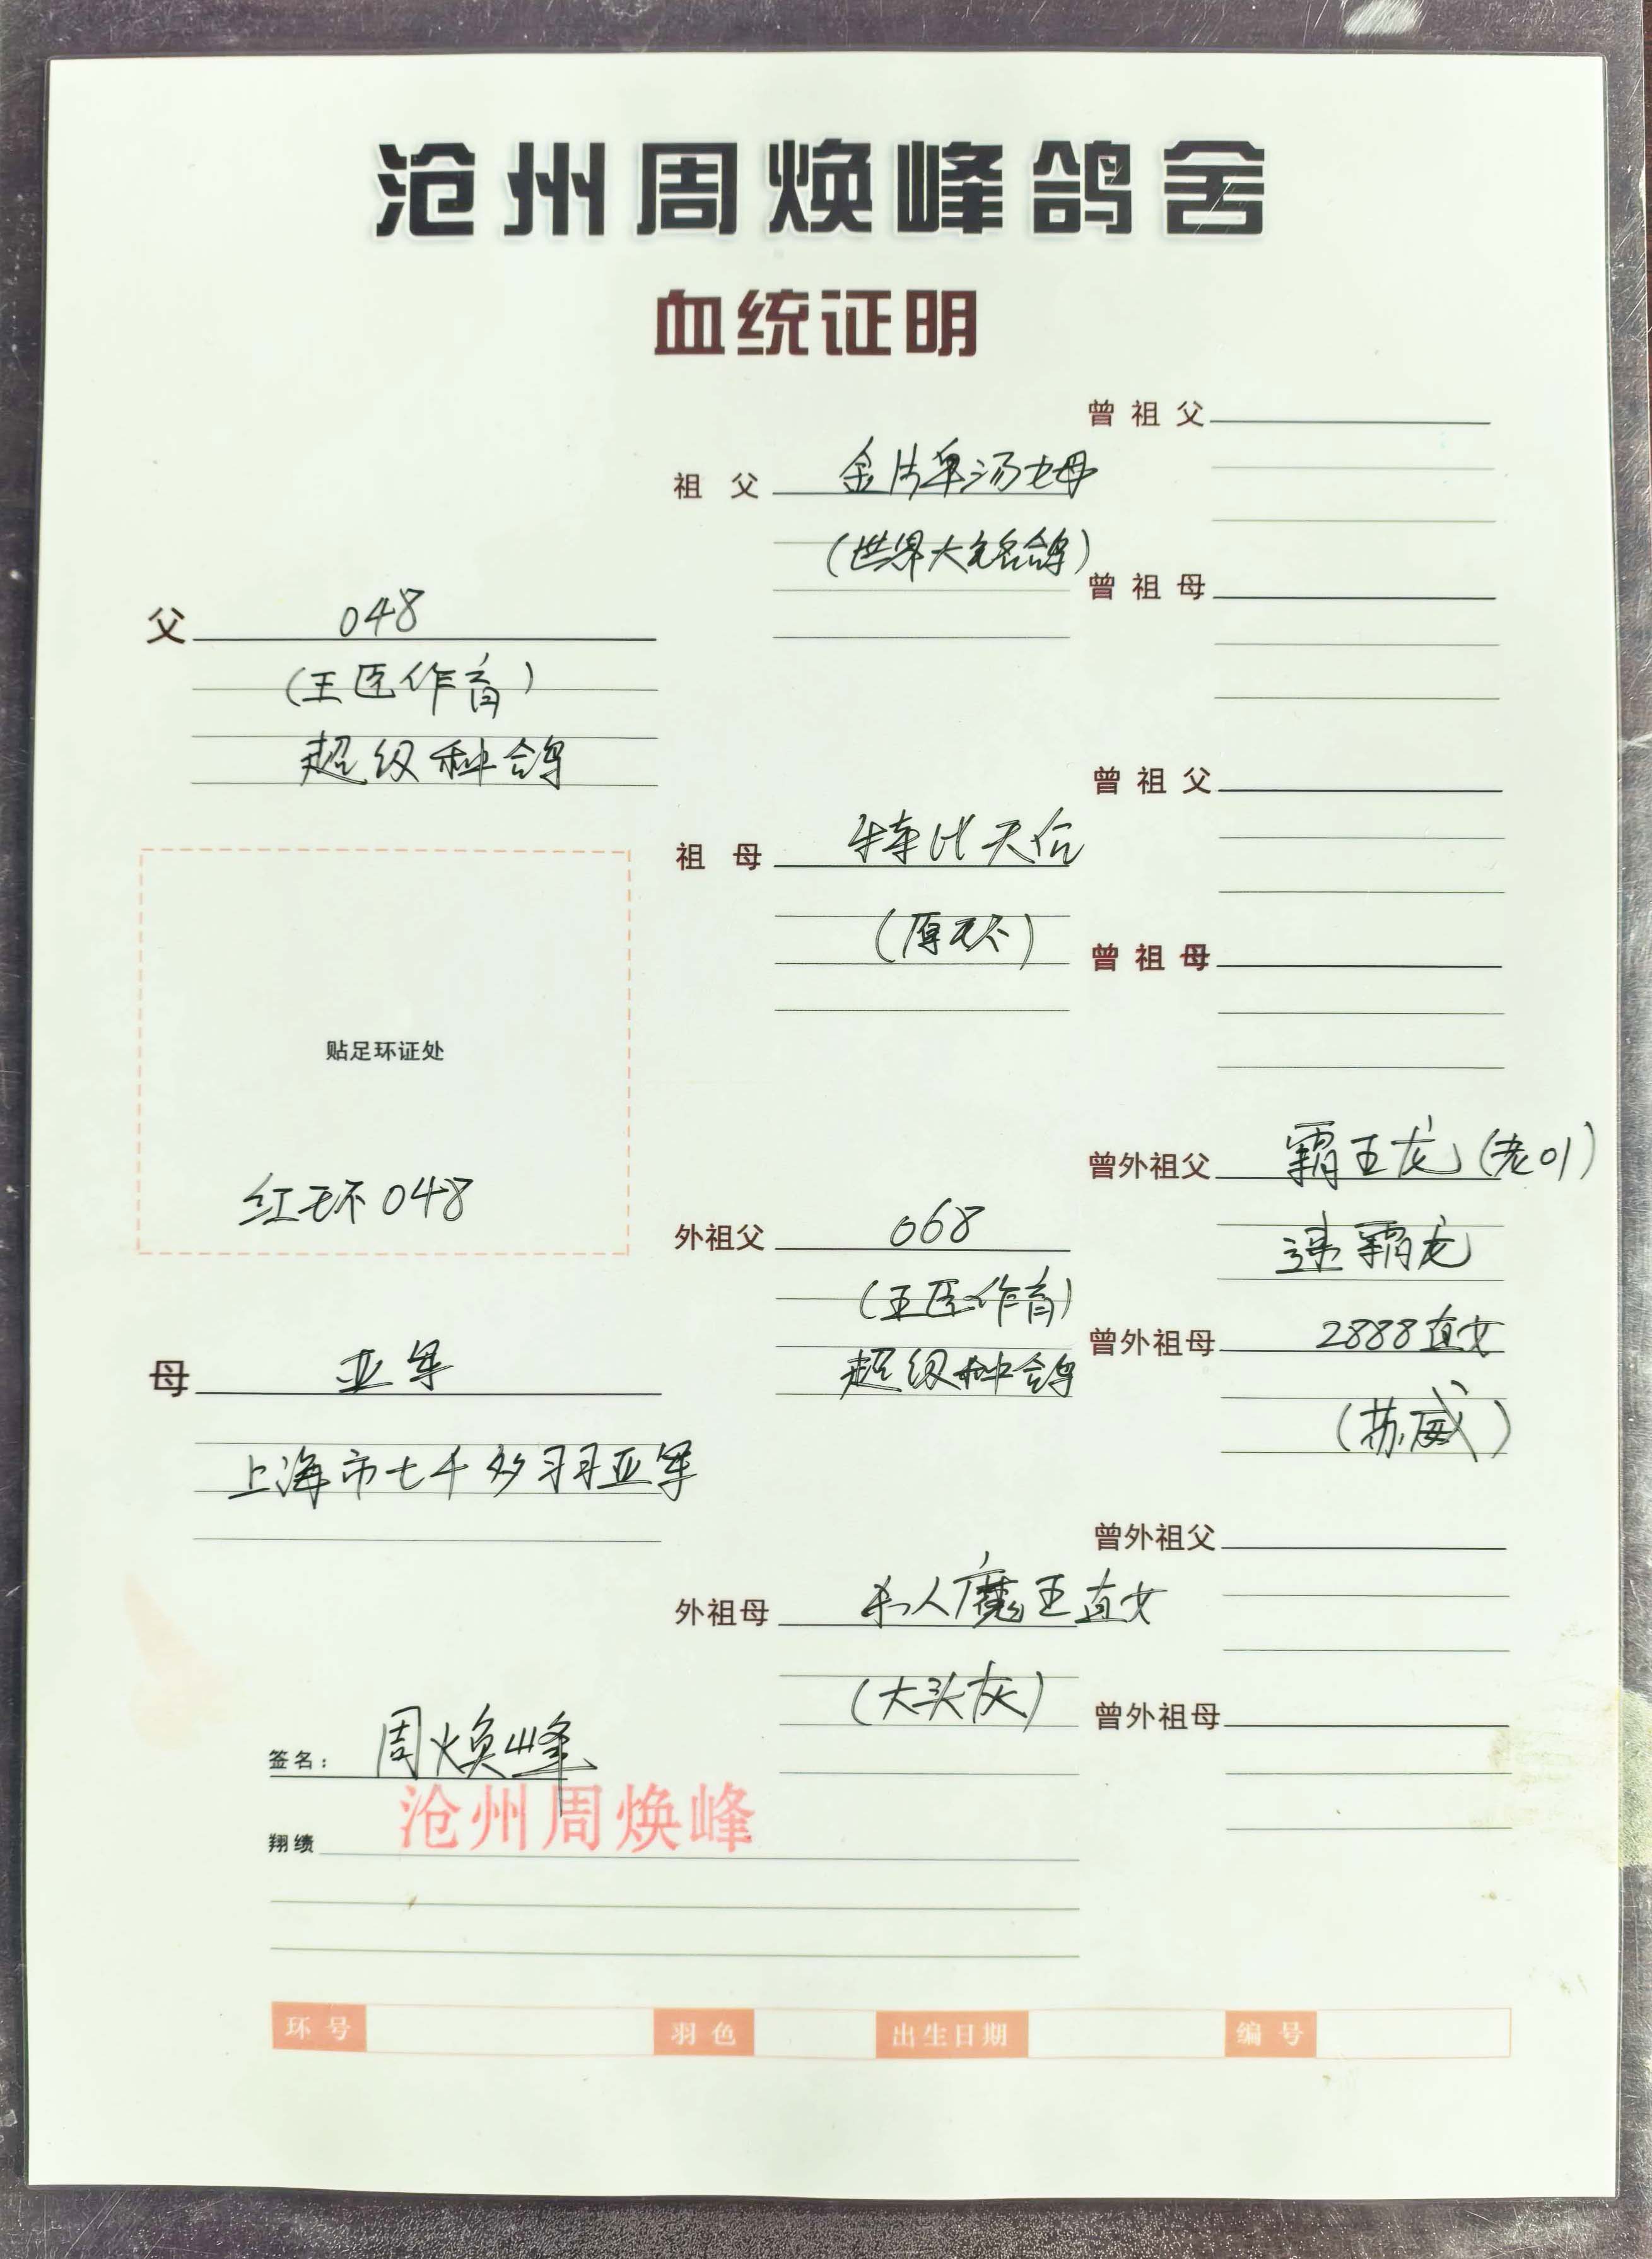 沧州周焕峰鸽舍
血统证明
父 048
(王臣作育)
超级种鸽
贴足环证处
红环048
母 亚军
上海市七千多羽亚军
祖 父 金卡单汤姆
(世界大名鸽)
祖 母
外祖父 068
(王臣作育)
超级种鸽
外祖母 杀人魔王直女
(大头灰)
曾 祖 父
曾 祖 母
曾 祖 父
曾 祖 母
曾外祖父 霸王龙(老01)
速霸龙
曾外祖母 2888直女
(苏威)
曾外祖父
曾外祖母
签名: 周焕峰
沧州周焕峰
翔绩
环 号 羽 色 出生日期 编 号